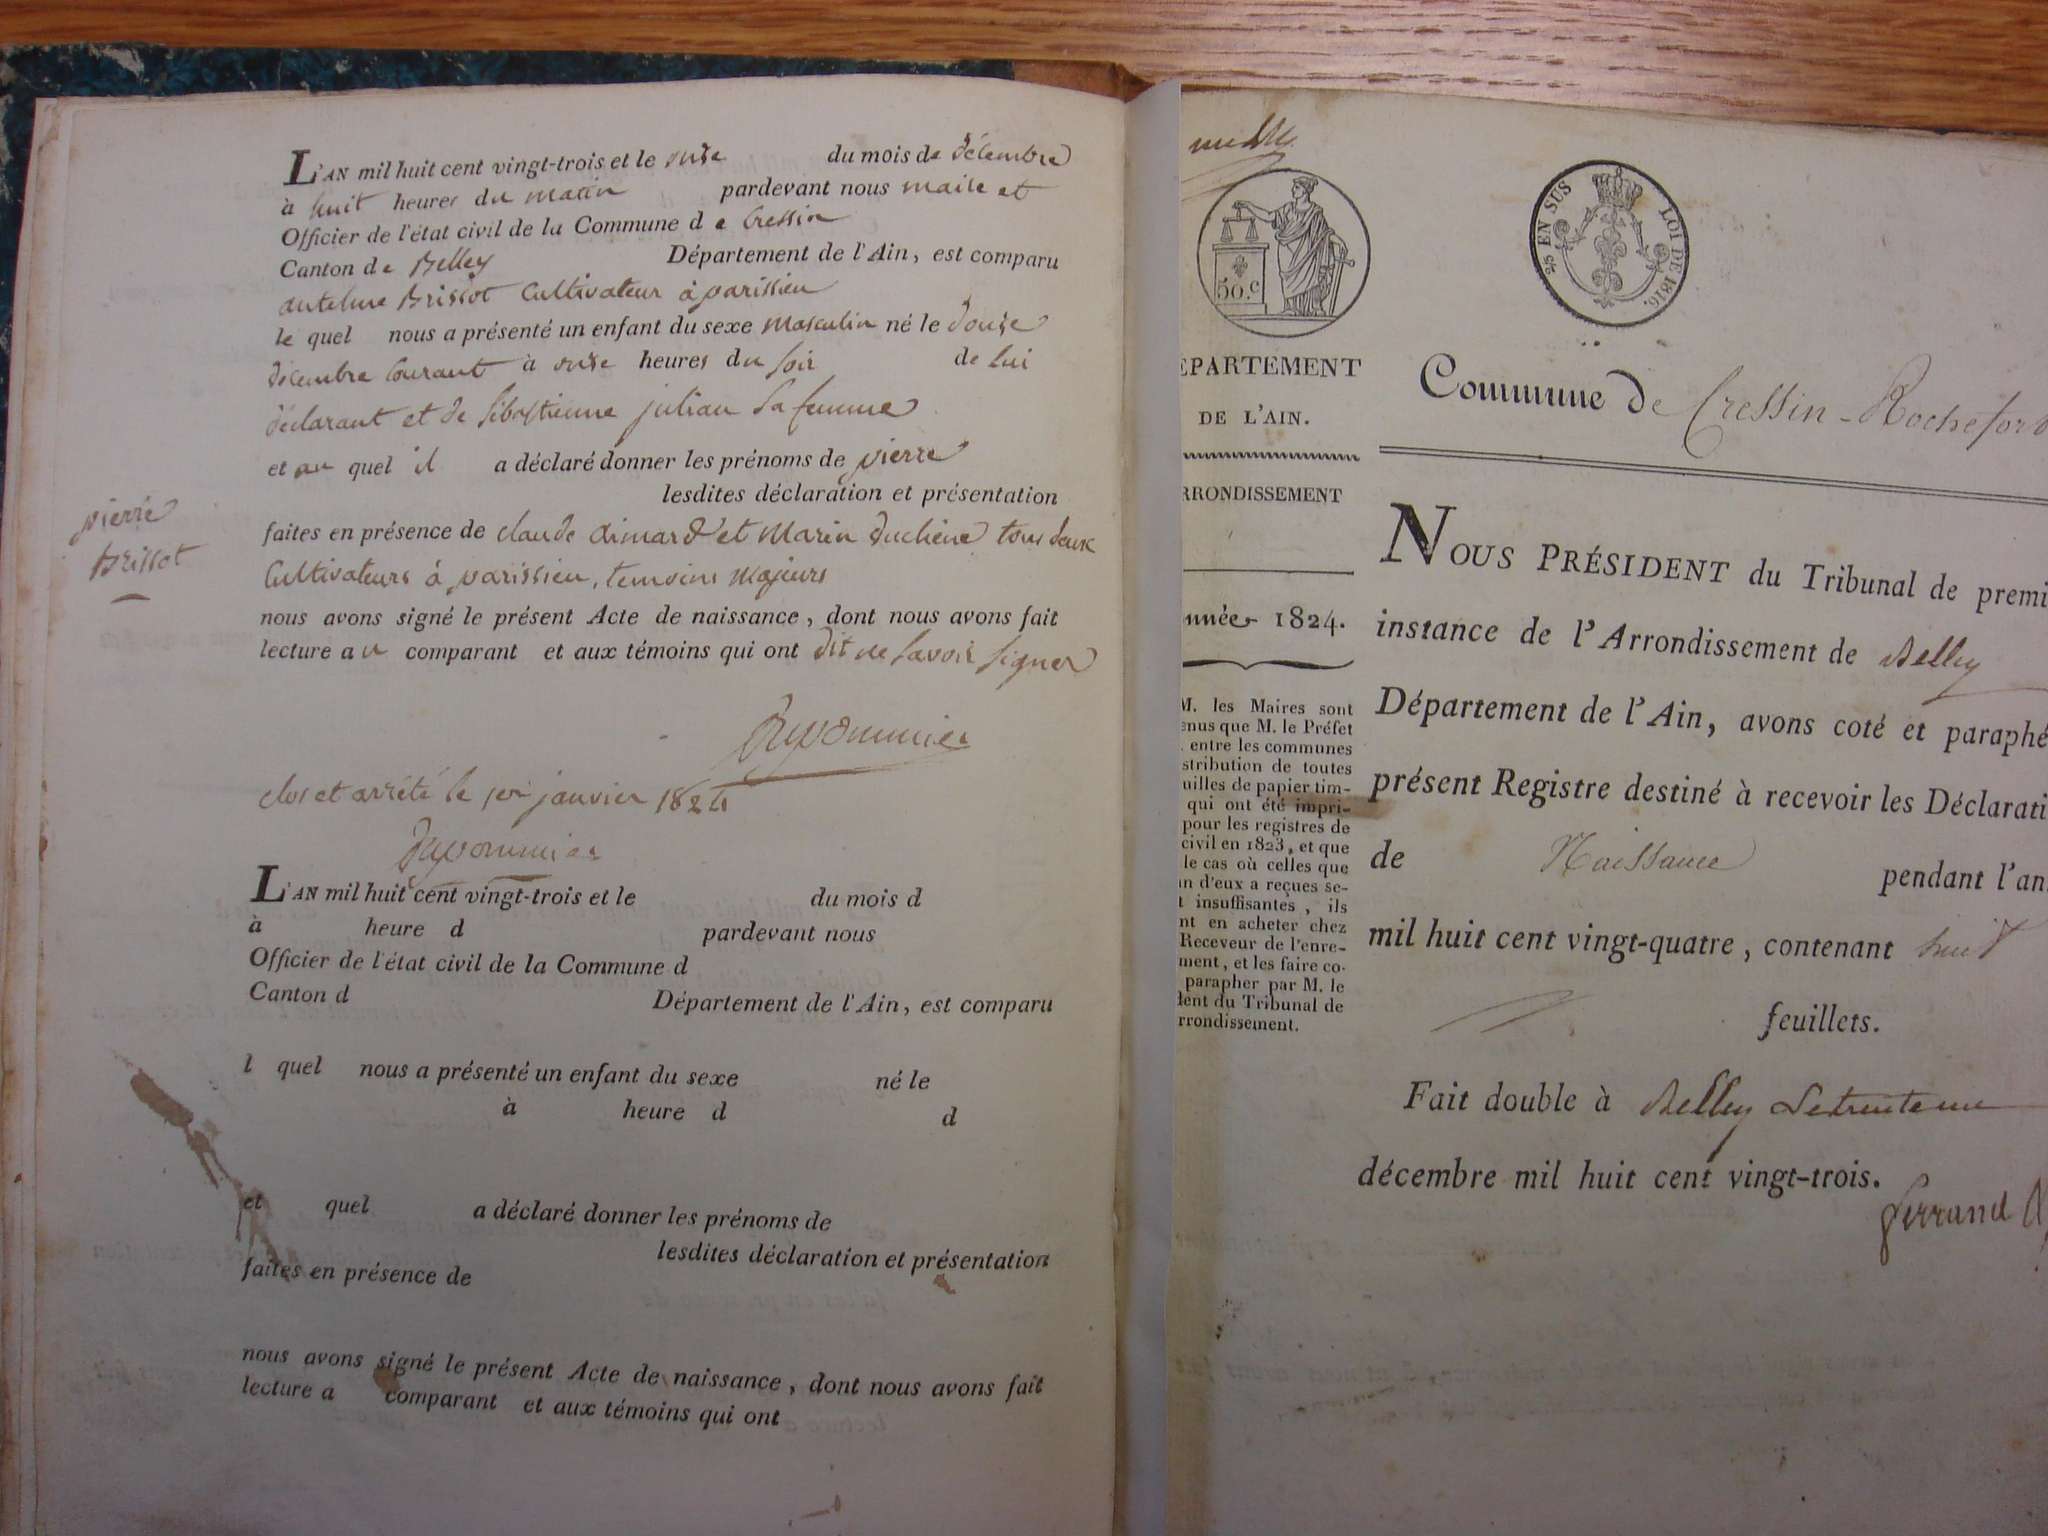 L'AN mil huit cent vingt-trois et le onze du mois de décembre
à huit heures du matin pardevant nous maire et
Officier de l'état civil de la Commune de Cressin
Canton de Belley Département de l'Ain, est comparu
antelme Brissot Cultivateur à parissieu
le quel nous a présenté un enfant du sexe masculin né le douze
décembre courant à onze heures du soir de lui
déclarant et de sébastienne julian sa femme
et au quel il a déclaré donner les prénoms de pierre
lesdites déclaration et présentation
pierre
Brissot
faites en présence de claude aimard et marin duchène tous deux
Cultivateurs à parissieu, temoins majeurs
nous avons signé le présent Acte de naissance, dont nous avons fait
lecture au comparant et aux témoins qui ont dit ne savoir signer
clos et arrété le 1er janvier 1824
L'AN mil huit cent vingt-trois et le du mois d
à heure d pardevant nous
Officier de l'état civil de la Commune d
Canton d Département de l'Ain, est comparu
l quel nous a présenté un enfant du sexe né le
à heure d d
et quel a déclaré donner les prénoms de
lesdites déclaration et présentation
faites en présence de
nous avons signé le présent Acte de naissance, dont nous avons fait
lecture a comparant et aux témoins qui ont
50.c
2/5 EN SUS LOI DE 1816.
EPARTEMENT
DE L'AIN.
RRONDISSEMENT
nnée 1824.
M. les Maires sont
enus que M. le Préfet
entre les communes
stribution de toutes
uilles de papier tim-
qui ont été impri-
pour les registres de
civil en 1823, et que
le cas où celles que
un d'eux a reçues se-
t insuffisantes, ils
nt en acheter chez
Receveur de l'enre-
ment, et les faire co-
parapher par M. le
dent du Tribunal de
rrondissement.
Commune de Cressin-Rochefort
NOUS PRÉSIDENT du Tribunal de premi
instance de l'Arrondissement de Belley
Département de l'Ain, avons coté et paraphé
présent Registre destiné à recevoir les Déclarati
de Naissance pendant l'an
mil huit cent vingt-quatre, contenant huit
feuillets.
Fait double à Belley Le trente un
décembre mil huit cent vingt-trois.
Ferrand